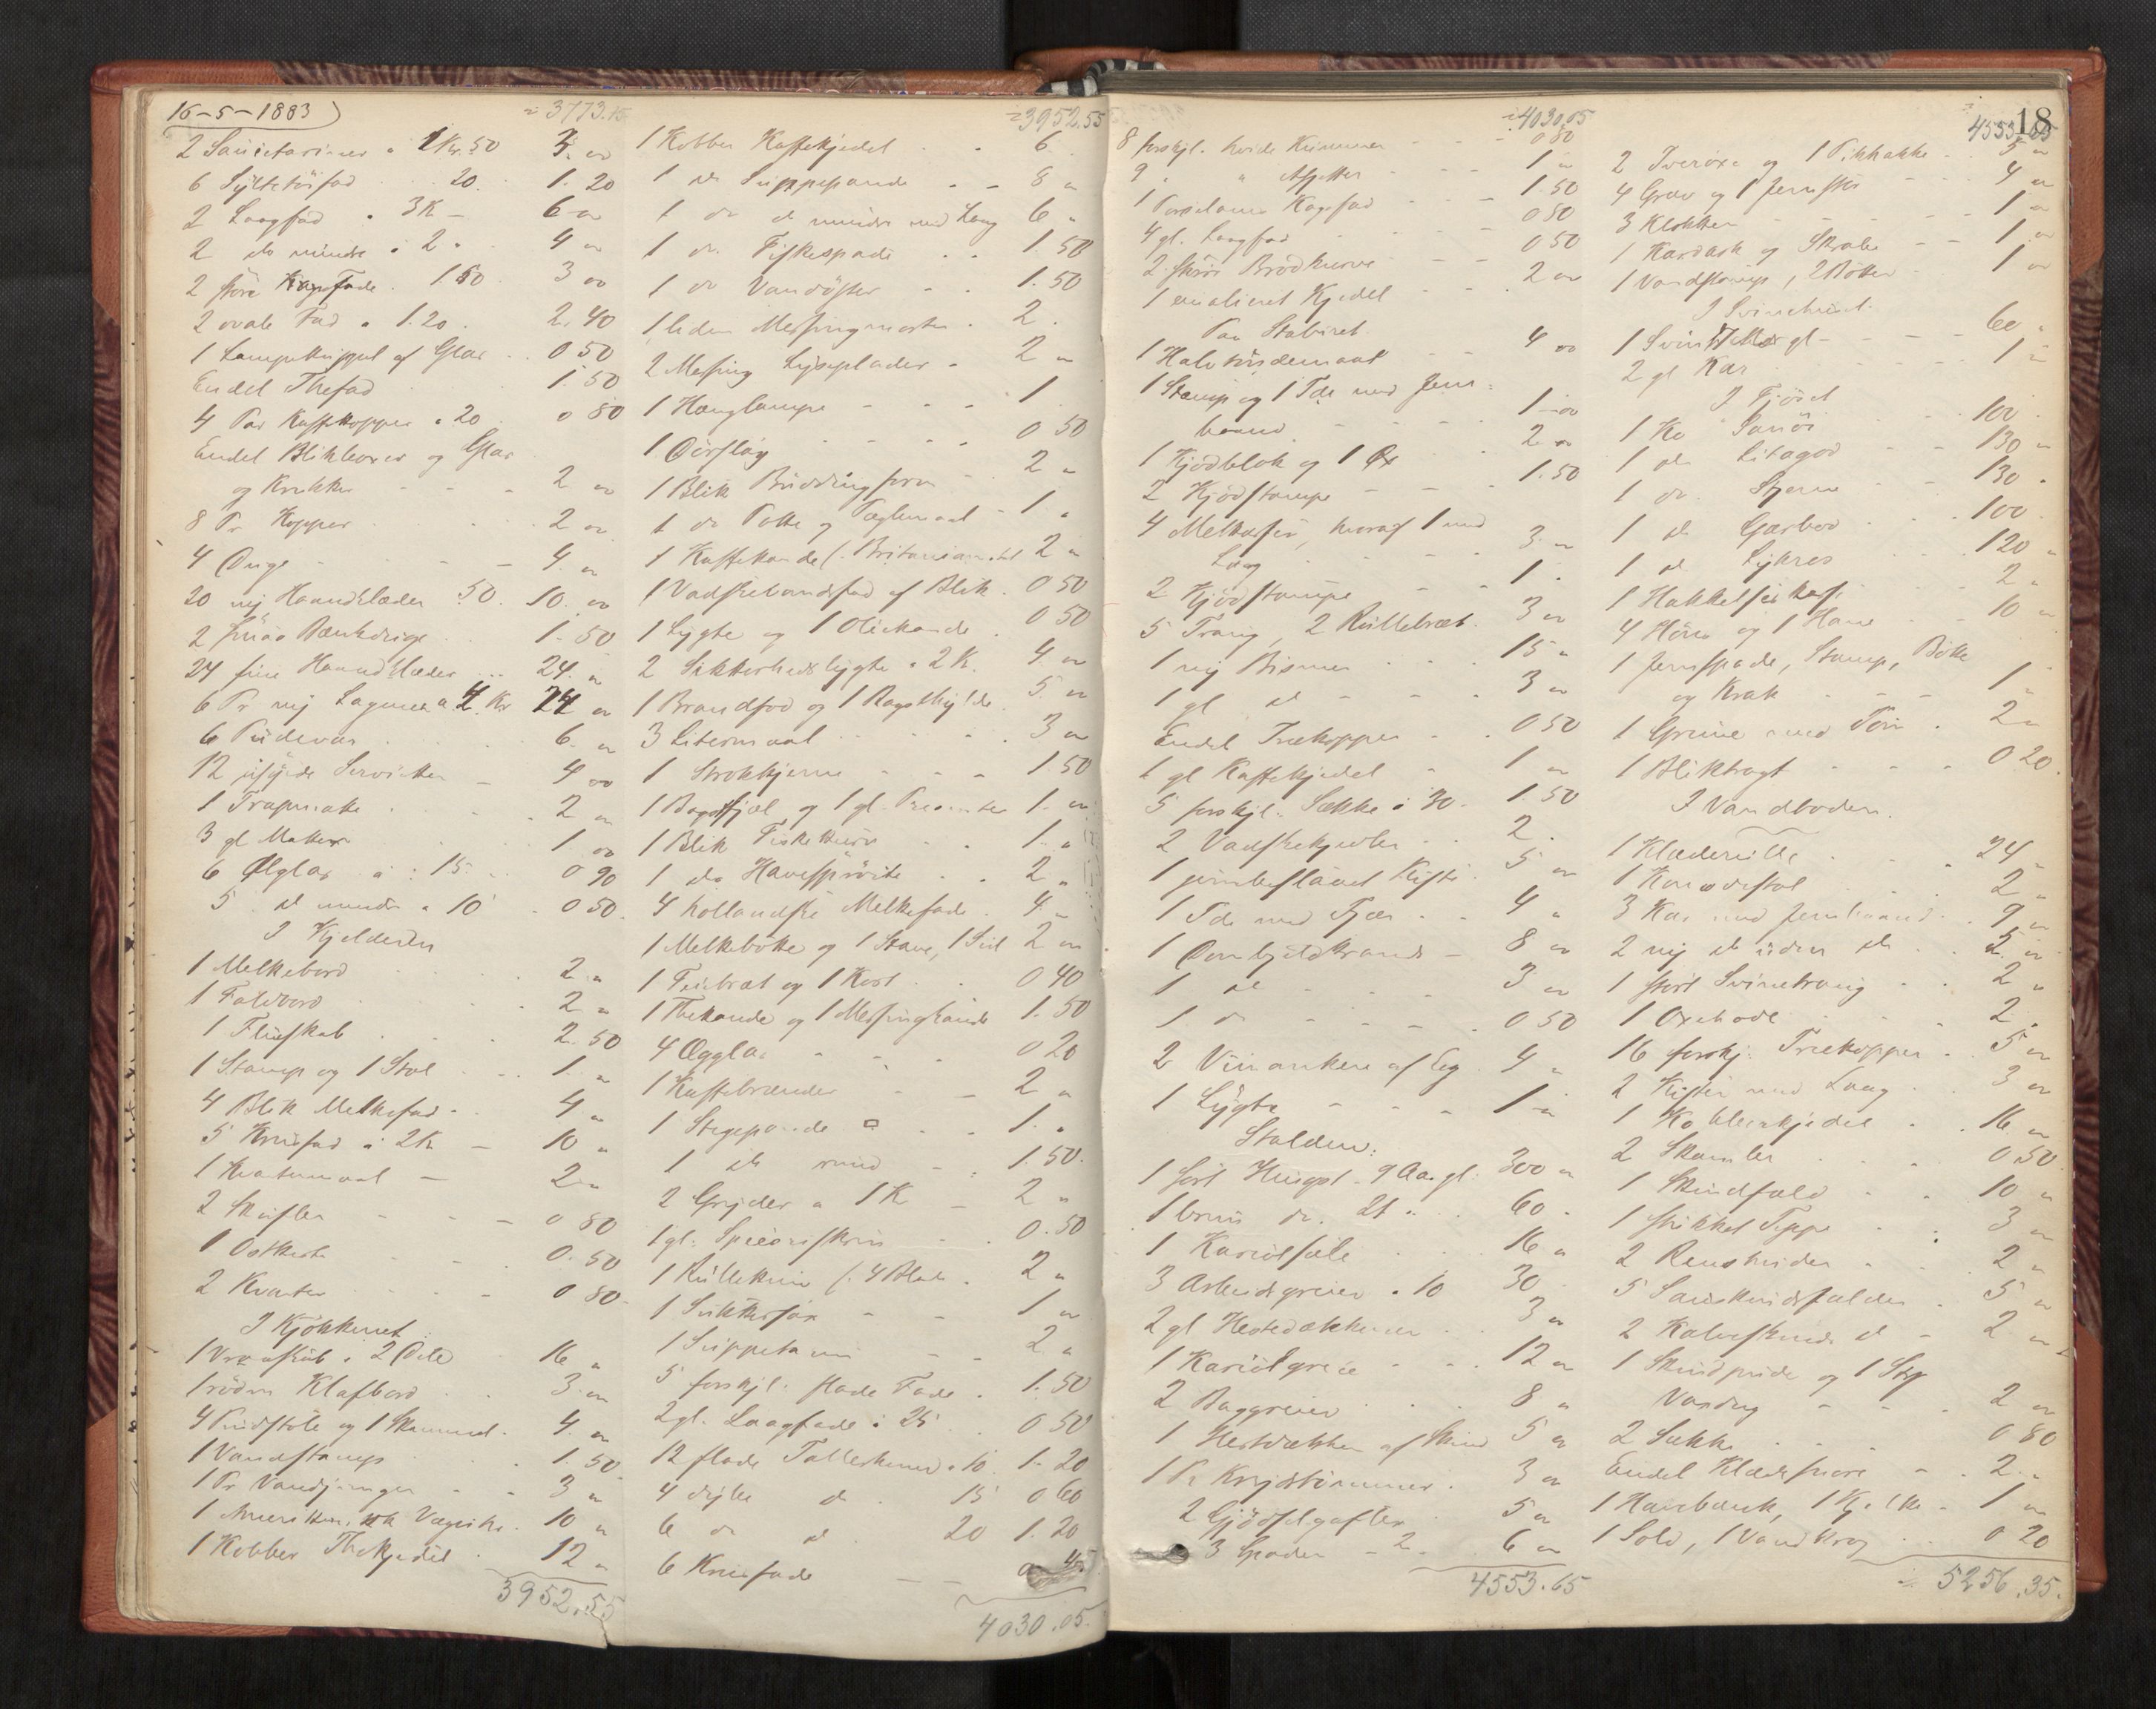 16-5-1883
÷3773.15
2 Saucetariner a 1Kr.50 3. oo
6 Syltetöifad 20. 1. 20
2 Laagfad a 3K - 6 oo
2 do mindre a 2 " 4 oo
2 store Kagefade . 1.50 3 oo
2 ovale Fad a 1.20 . 2.40
1 Lampekuppel af Glas . . 0 50
Endel Thefad 1. 50
4 Par Kaffekopper a 20 . 0 80
Endel Blikboxer og Glas
og Krukker - - - 2 oo
8 Pr Kopper 2 oo
4 Duge - - - 4. oo
20 nij Haandklæder 50. 10. oo
2 smaa Bænkdüge 1. 50
24 fine Haandklæder ... 24. "
6 Pr nij Lagner a 4 Kr 24 oo
6 Püdevar 6. oo
12 usyede Servietter - 4 oo
1 Trapmatte 2 oo
3 gl Matter 1 oo
6 Ølglas a 15. 0 90
5 do mindre a 10 0 50.
I Kjelderen
1 Melkebord 2 "
1 Foldbord 2 "
1 Flueskab 2. 50
1 Stamp og 1 Stol 1. "
4 Blik Melkefad - 4 "
5 Krusfad a 2K - 10 "
1 Kvartermaal - 2 "
2 Skufler - - - 0 80
1 Ostkiste 0. 50
2 Kvarter 0 80
I Kjökkenet
1 Vraaskab i 2 Dele 16 "
1 röden Klafbord 3. oo
4 Pindstole og 1 Skammel. 4. oo
1 Vandstamp 1. 50
1 Pr Vandspringer - - 3 "
1 Amerikansk Væguhr. 10 "
1 Kobber Thekjedel 12 "
3952.55
÷3952.55
1 Kobber Kaffekjedel - - 6 .
1 do Suppepande - - 8 "
1 do do mindre med Laag 6 "
1 do. Fiskespade . . 1. 50
1 do Vandöser - - 1. 50
1 liden Messingmorter . 2 .
2 Messing Lyseplader - 2 "
1 Hænglampe - - - 1
1 Dörslag - - - - 0 50
1 Blik Buddingform - 2 "
1 do Potte og Pæglemaal - 1 "
1 Kaffekande (. Britaniametal 2 "
1 Vadskevandsfad af Blik . 0 50
1 Lygte og 1 Oliekande . 0 50
2 Sikkerhedslygte a 2K. 4. oo
1 Brandfod og 1 Bagsthylde 5. oo
3 Litermaal 3 oo
1 Strokkjerne - - - 1. 50
1 Bagefjæl og 1 gl. 1. oo
1 Blik Fiskekurv 1. "
1 do Havesprøite . . 2 "
4 hollandske Melkefade . 4 -
1 Melkebötte og 1 Stave, 1 Sil 2 oo
1 Feiebræt og 1 Kost . . 0 40
1 Thekande og 1 Messinghaand 1. 50
4 Ægglas - - - 0 20
1 Kaffebrænder - - 2 "
1 Stegepande □ . . 1. "
1 do rund - . 1. 50.
2 Gryder a 1K - 2 "
1 gl. Speceriskrin 0. 50
1 Küllekniv (. 4 Blade . 2 "
1 Sukkersax - - 1 "
1 Suppeterrin - - 2 "
5 forskjl. flade Fade . 1. 50
2 gl. Laagfade a 25 0 50
12 flade Tallerkener a 10. 1. 20
4 dybe do . 15 0 60
6 do do 20 1. 20
6 Krusfade - -
4030.05.
÷4030.05
8 forskjl. hvide Kummer - - - 0 80
9 " " Assietter - - - 1 "
1 Porselains Kagefad - - - 1. 50
4 gl. Laagfad 0 50
2 större Brödkurve 0 50
1 emalieret Kjedel . . . 2 oo
Paa Staburet.
1 Halvtöndemaal - - 4 oo
1 Stamp og 1 Tde med Jern-
baand - - - 1 - oo
1 Kjödblok og 1 Öx 2. oo
2 Kjödstampe - - - 1. 50
4 Melkasser, hvoraf 1 med
Laag 3 oo
2 Kjödstampe - - 1 .
5 Traug, 2 Rullebræt. 3 oo
1 nij Bismer 15 "
1 gl do - - - 3 oo
Endel Trækopper . . 0 50
1 gl Kaffekjedel - 1 "
5 forskjl. Sække a 30 - 1. 50
2 Vadskekjedler - 2 .
1 jernbeslaaet Kiste . 5 oo
1 Tde med Tjære . . 4 "
1 Dombjeldkrands - 8 oo
1 do - - - 3 oo
1 do - - - 0 50
2 Vinankere af Eg . 4 "
1 Lygte - - - 1 "
Stalden:
1 sort Hingst 9 Aar gl. 300 "
1 brun do. 21 " 60 .
1 Kariolsæle 16 "
3 Arbeidsgreier a 10 30 .
2 gl Hestedækkener 3 oo
1 Kariolgreie 12 oo
2 Baggreier 8 "
1 Hestdækken af Skind 5 oo
1 Pr Krydstömmer . 3 oo
2 Gjödselgafler 5 "
3 Spader - 2 . 6 oo
4553.65
18
÷4553.65
2 Tveröxe og 1 Pikhakke . 5 "
4 Grev og 1 Jernstör - - 4 "
3 Klokker - - - 1 "
1 Kardask og Skrabe - - 1 oo
1 Vandstamp, 2 Bötter - 1 "
I Svinehuset.
1 Svin 60 .
2 gl Kar 1 "
I Fjöset
1 Ko Sanöi 100 .
1 do Litagod 130 "
1 do. Stjerne 130 .
1 do Gaasbod 100 .
1 do Lykros 120 "
1 Hakkelseskiste 2 "
4 Höns og 1 Hane - 10 "
1 Jernspade, Stamp, Bötte
og Krak - - - 1 "
1 Grime med Töm . 2 "
1 Bliktragt - - - 0 20.
I Vandboden.
1 Klæderulle 24 "
1 Konestol 2 "
3 Kar med Jernbaand - 9 "
2 nij do uden do . 5. "
1 stort Svinetraug - - 2 "
1 Oxehode - 2 "
16 forskj. Trækopper . 5 oo
2 Kister med Laag 3 oo
1 Kobberkjedel . . 16 "
2 Skamler 0 50
1 Skindfæld . . 10 "
1 strikket Teppe . . 3 "
2 Renshuder - - 2 "
5 Saueskindsfælder . 5 "
2 Kalveskinds do - 2 "
1 Skindpude og 1 Stk
Vandtøg - - 2 "
2 Sække 0 80
Endel Klædesnore - . 2. "
1 Havebænk, 1 Kjælke - 1 "
1 Sold, 1 Vandkrog 0 20
÷ 5256.35.